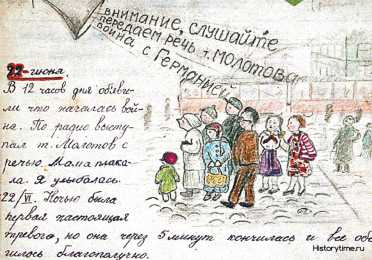 внимание, слушайте
передаем речь т. Молотова
война с Германией
22-июня.
В 12 часов дня обвяви-
ли что началась вой-
на. По радио высту-
пал т. Молотов с
речью. Мама плака-
ла. Я улыбалась.
22/VI. Ночью была
первая настоящая
тревога, но она через 5 минут кончилась и все обо-
шлось благополучно.
Historytime.ru